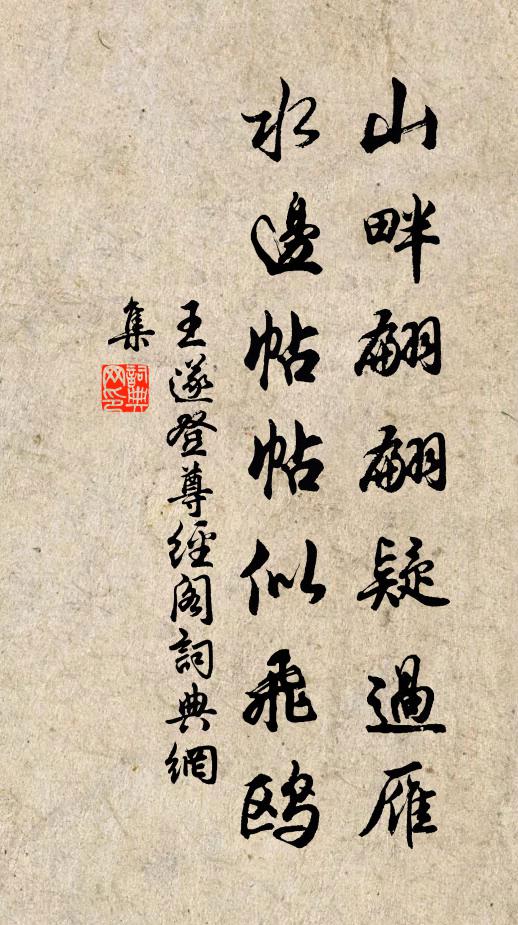 山畔翩翩疑過雁
水邊帖帖似飛鷗
王遂登尊經閣詞典網
集
詞典
网印